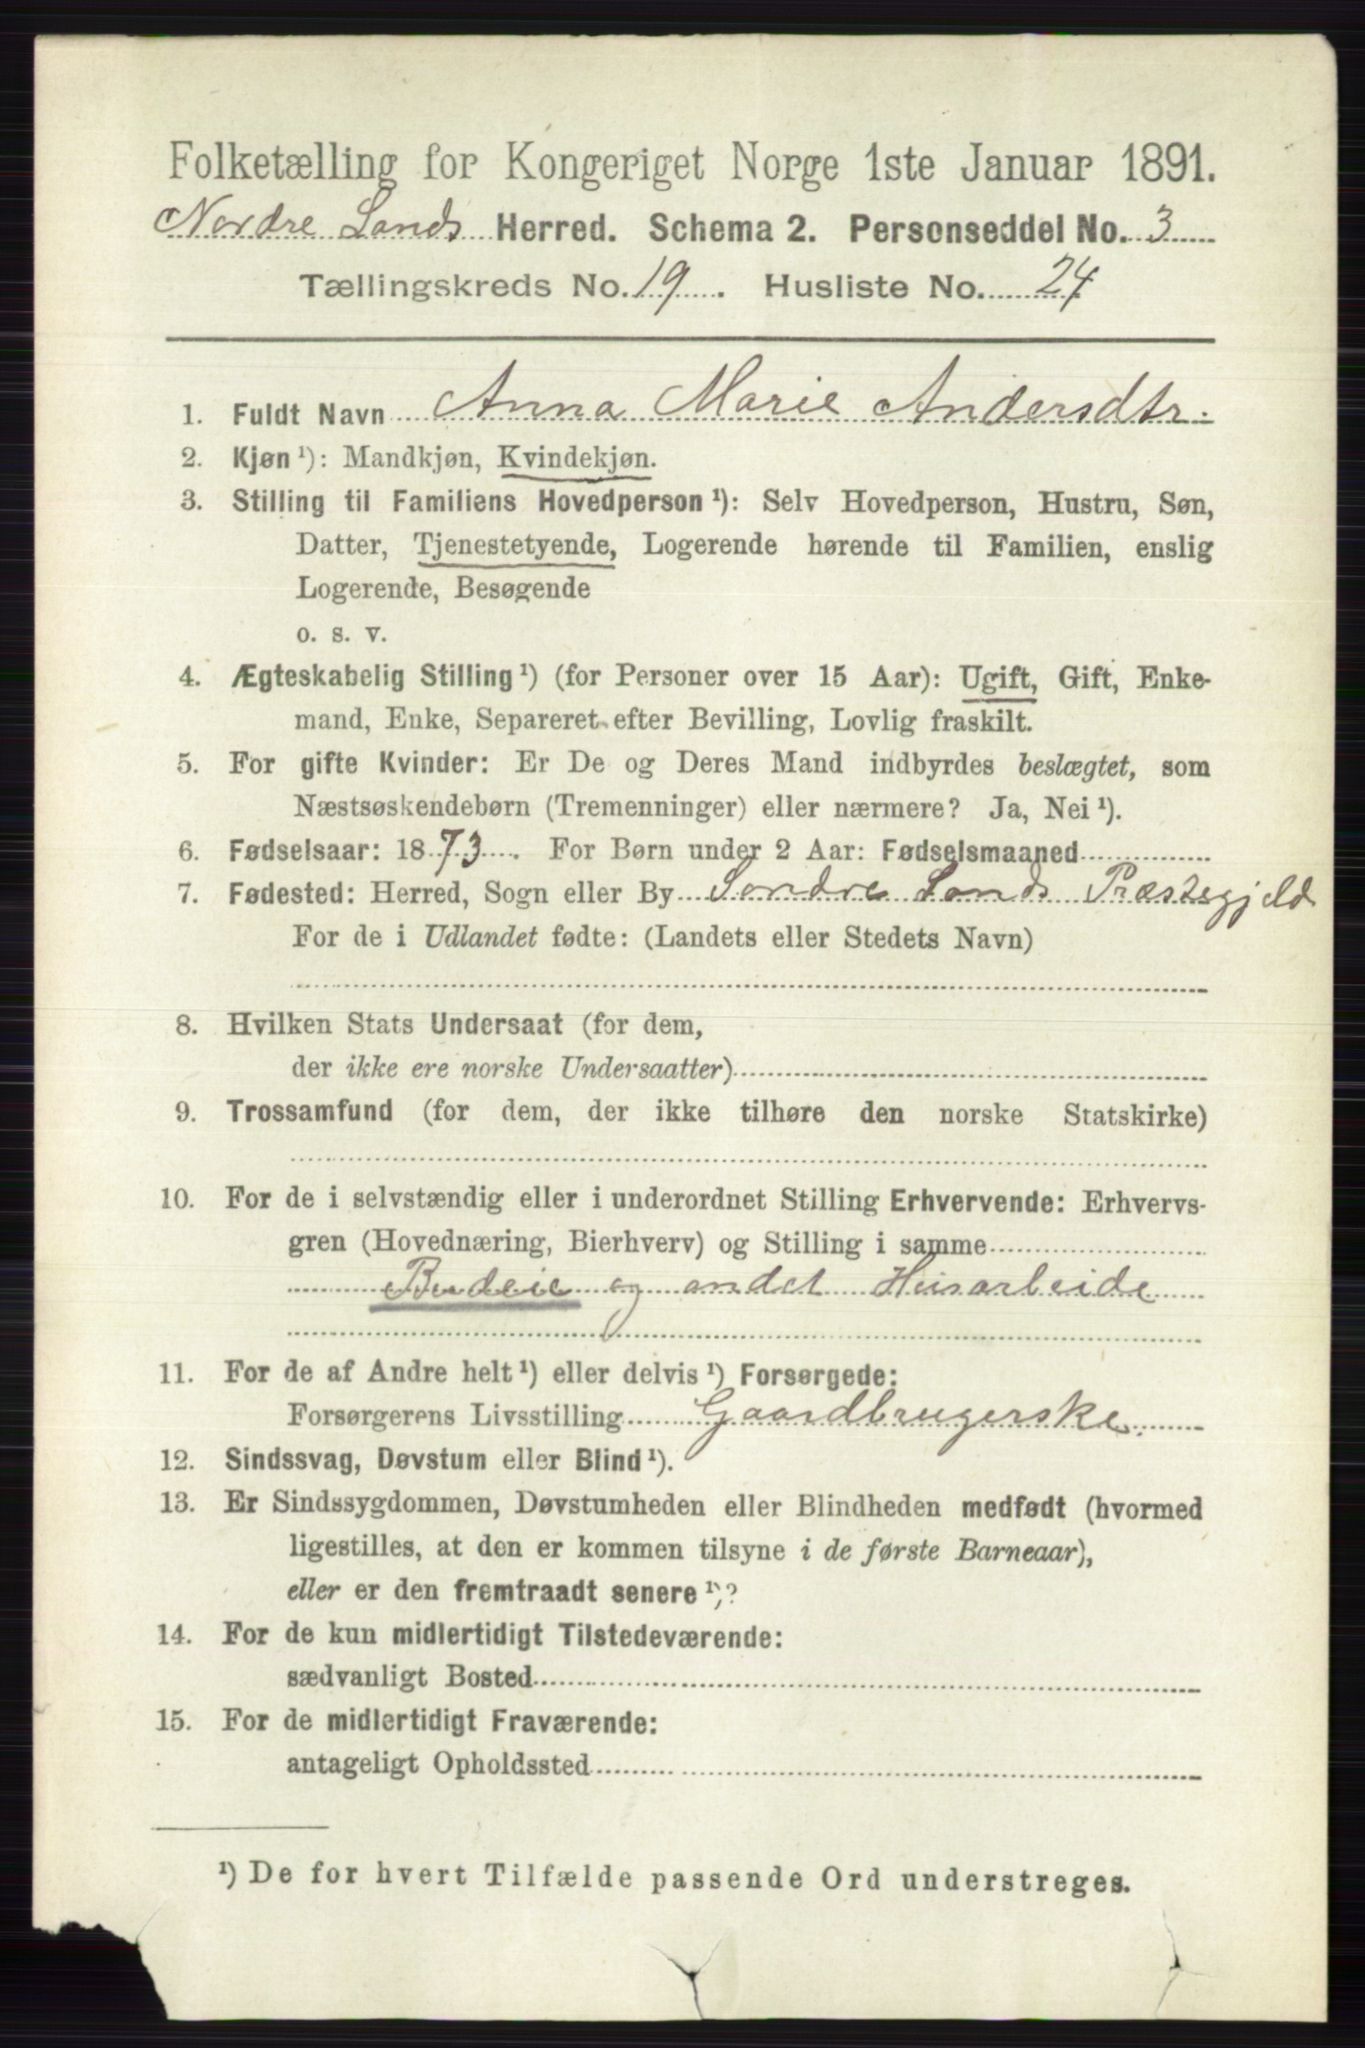 Folketælling for Kongeriget Norge 1ste Januar 1891.
Nordre Lands Herred. Schema 2. Personseddel No. 3
Tællingskreds No. 19. Husliste No. 24
1. Fuldt Navn Anna Marie Andersdtr.
2. Kjøn ¹): Mandkjøn, Kvindekjøn.
3. Stilling til Familiens Hovedperson ¹): Selv Hovedperson, Hustru, Søn,
Datter, Tjenestetyende, Logerende hørende til Familien, enslig
Logerende, Besøgende
o. s. v.
4. Ægteskabelig Stilling ¹) (for Personer over 15 Aar): Ugift, Gift, Enke-
mand, Enke, Separeret efter Bevilling, Lovlig fraskilt.
5. For gifte Kvinder: Er De og Deres Mand indbyrdes beslægtet, som
Næstsøskendebørn (Tremenninger) eller nærmere? Ja, Nei ¹).
6. Fødselsaar: 1873. For Børn under 2 Aar: Fødselsmaaned
7. Fødested: Herred, Sogn eller By Søndre Lands Præstegjeld
For de i Udlandet fødte: (Landets eller Stedets Navn)
8. Hvilken Stats Undersaat (for dem,
der ikke ere norske Undersaatter)
9. Trossamfund (for dem, der ikke tilhøre den norske Statskirke)
10. For de i selvstændig eller i underordnet Stilling Erhvervende: Erhvervs-
gren (Hovednæring, Bierhverv) og Stilling i samme
Budeie og andet Husarbeide
11. For de af Andre helt ¹) eller delvis ¹) Forsørgede:
Forsørgerens Livsstilling Gaardbrugerske.
12. Sindssvag, Døvstum eller Blind ¹).
13. Er Sindssygdommen, Døvstumheden eller Blindheden medfødt (hvormed
ligestilles, at den er kommen tilsyne i de første Barneaar),
eller er den fremtraadt senere ¹)?
14. For de kun midlertidigt Tilstedeværende:
sædvanligt Bosted
15. For de midlertidigt Fraværende:
antageligt Opholdssted
¹) De for hvert Tilfælde passende Ord understreges.